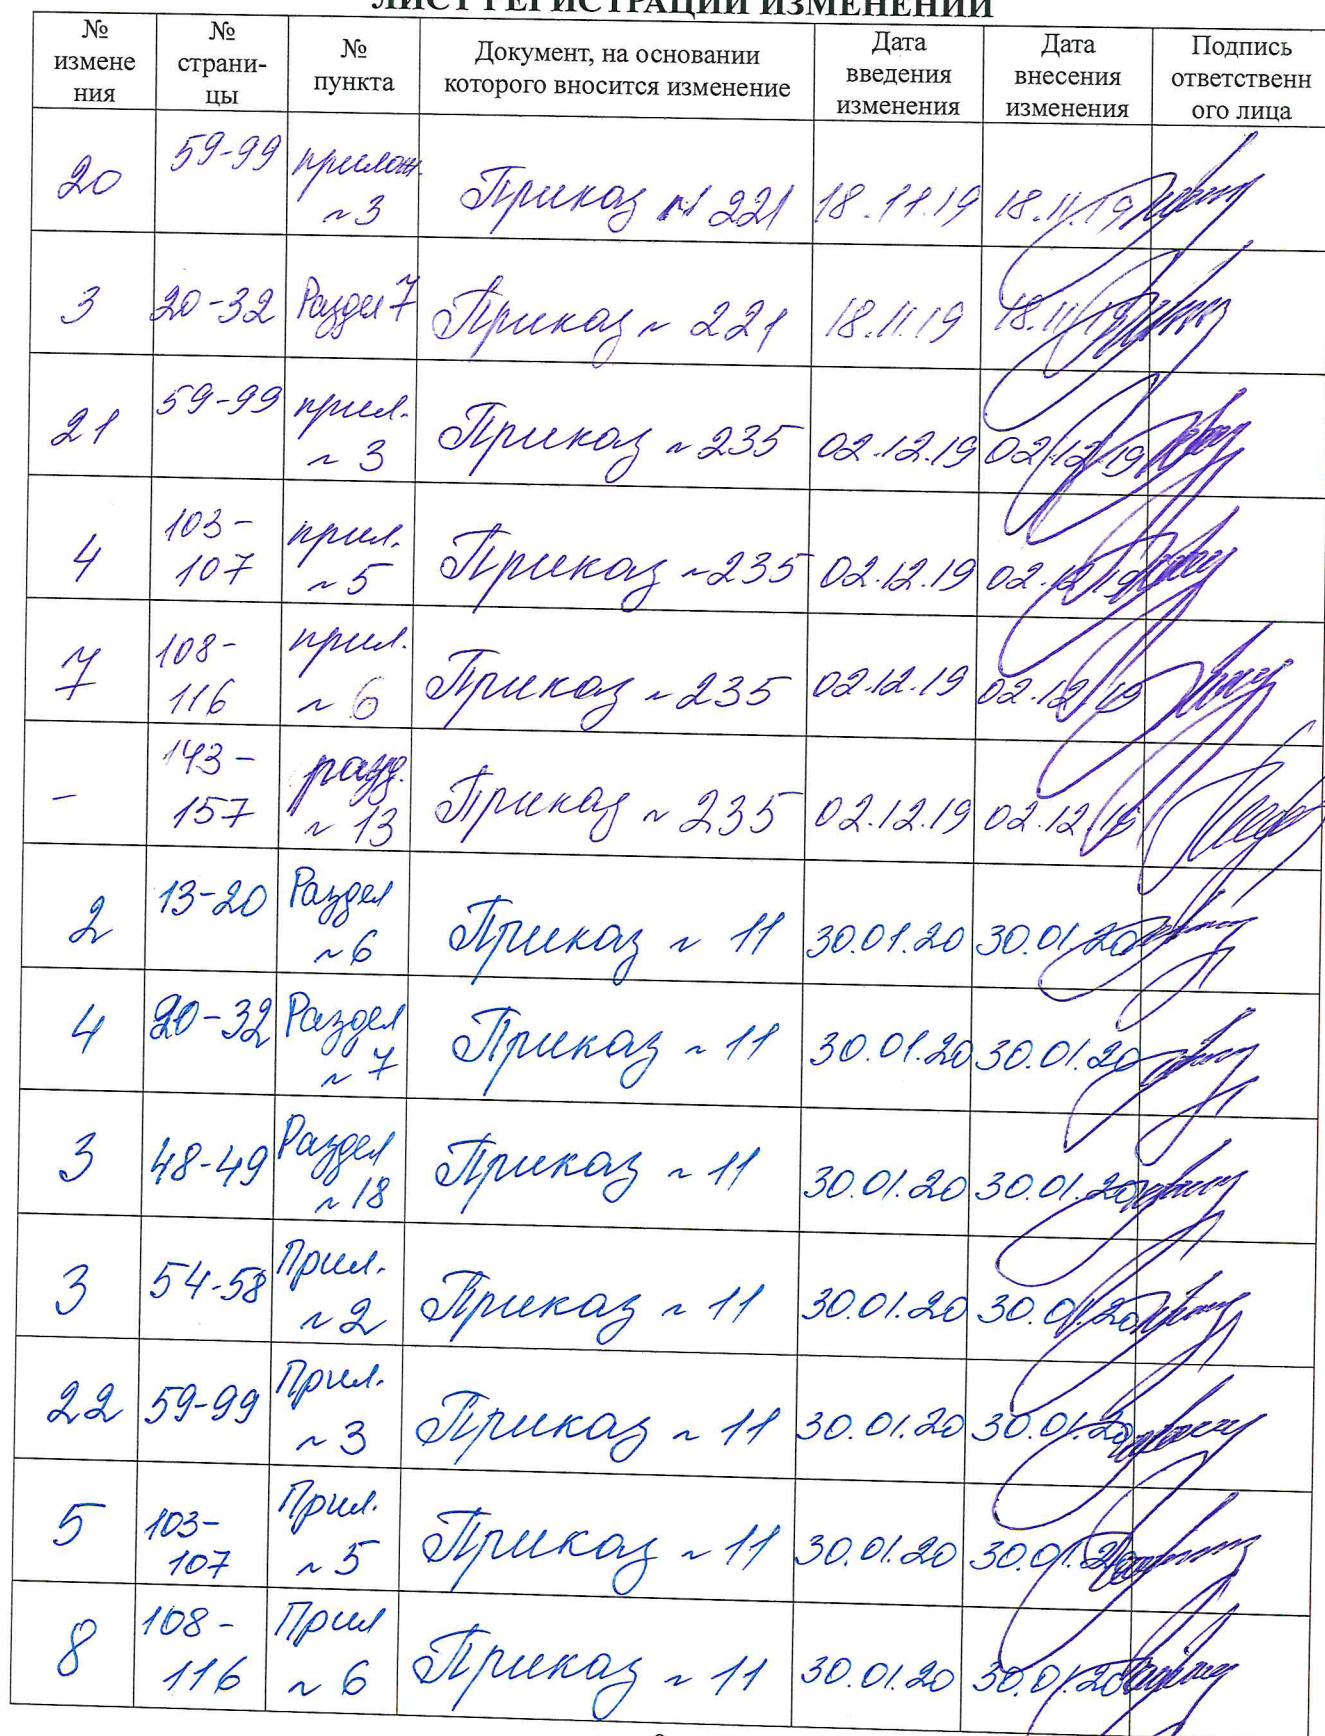 ЛИСТ РЕГИСТРАЦИИ ИЗМЕНЕНИЙ
№
измене
ния
№
страни-
цы
№
пункта
Документ, на основании
которого вносится изменение
Дата
введения
изменения
Дата
внесения
изменения
Подпись
ответственн
ого лица
20
59-99
прилож.
~3
Приказ № 221
18.11.19
18.11.19
3
20-32
Раздел 7
Приказ ~ 221
18.11.19
18.11.19
21
59-99
прил.
~ 3
Приказ ~ 235
02.12.19
02.12.19
4
103-
107
прил.
~ 5
Приказ ~ 235
02.12.19
02.12.19
7
108-
116
прил.
~ 6
Приказ ~ 235
02.12.19
02.12.19
–
143-
157
разд.
~ 13
Приказ ~ 235
02.12.19
02.12.19
2
13-20
Раздел
~6
Приказ ~ 11
30.01.20
30.01.20
4
20-32
Раздел
~ 7
Приказ ~ 11
30.01.20
30.01.20
3
48-49
Раздел
~ 18
Приказ ~ 11
30.01.20
30.01.20
3
54-58
Прил.
~ 2
Приказ ~ 11
30.01.20
30.01.20
22
59-99
Прил.
~ 3
Приказ ~ 11
30.01.20
30.01.20
5
103-
107
Прил.
~ 5
Приказ ~ 11
30.01.20
30.01.20
8
108-
116
Прил
~ 6
Приказ ~ 11
30.01.20
30.01.20